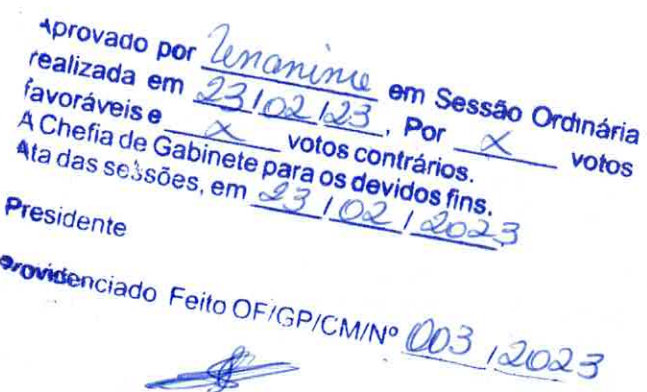 Aprovado por Unanime em Sessão Ordinária
realizada em 23/02/23, Por x votos
favoráveis e x votos contrários.
A Chefia de Gabinete para os devidos fins.
Ata das sessões, em 23/02/2023
Presidente
Providenciado Feito OF/GP/CM/Nº 003/2023